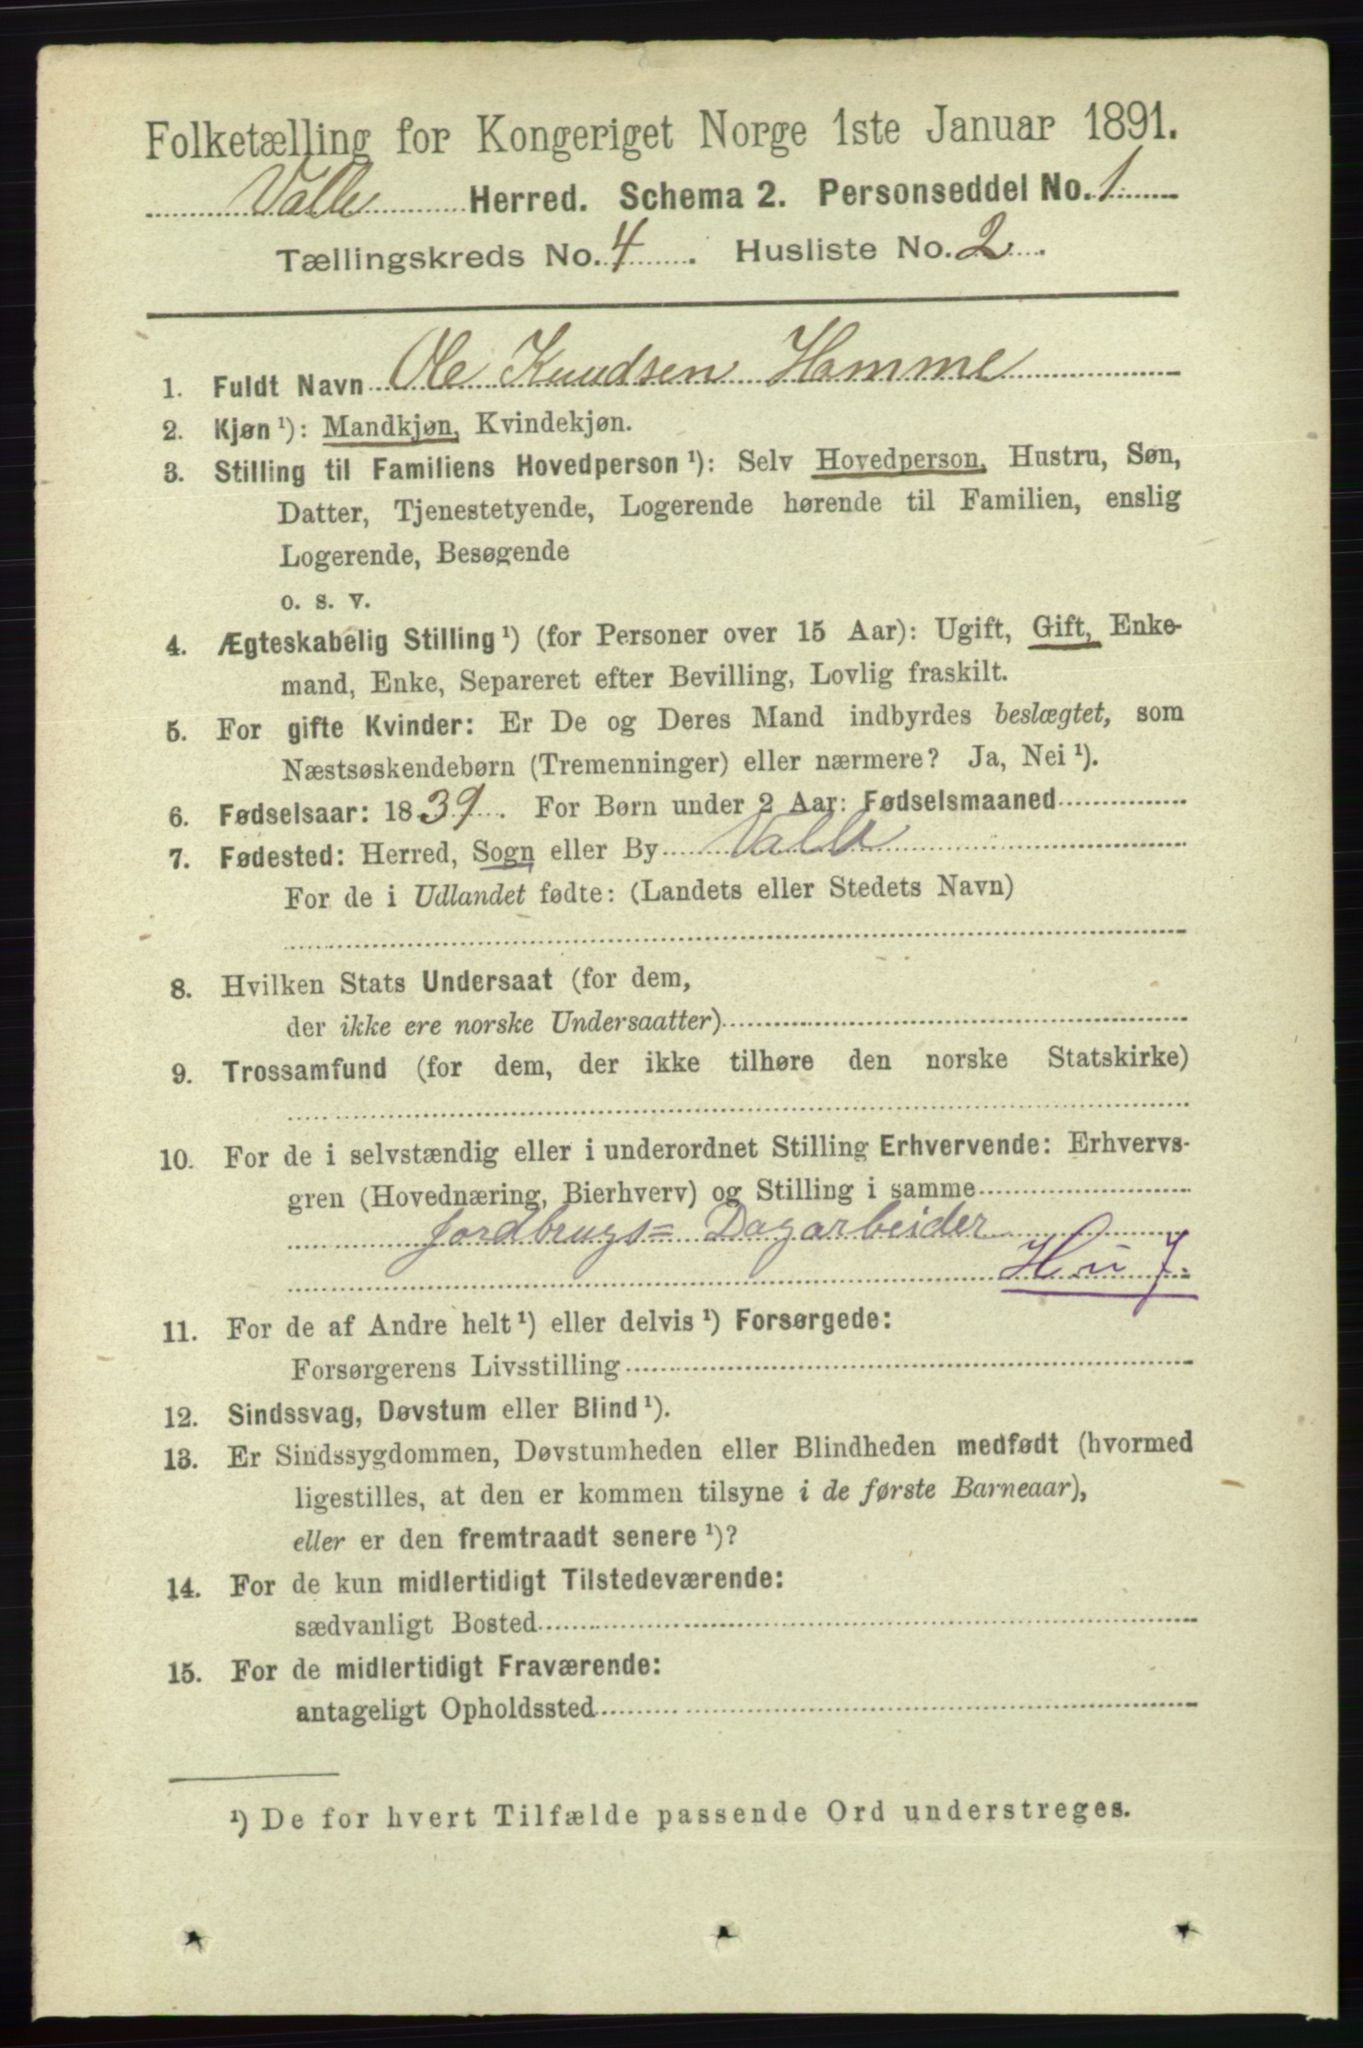 Folketælling for Kongeriget Norge 1ste Januar 1891.
Valle Herred. Schema 2. Personseddel No. 1
Tællingskreds No. 4. Husliste No. 2.
1. Fuldt Navn Ole Knudsen Homme
2. Kjøn ¹): Mandkjøn, Kvindekjøn.
3. Stilling til Familiens Hovedperson ¹): Selv Hovedperson, Hustru, Søn,
Datter, Tjenestetyende, Logerende hørende til Familien, enslig
Logerende, Besøgende
o. s. v.
4. Ægteskabelig Stilling ¹) (for Personer over 15 Aar): Ugift, Gift, Enke-
mand, Enke, Separeret efter Bevilling, Lovlig fraskilt.
5. For gifte Kvinder: Er De og Deres Mand indbyrdes beslægtet, som
Næstsøskendebørn (Tremenninger) eller nærmere? Ja, Nei ¹).
6. Fødselsaar: 1839. For Børn under 2 Aar: Fødselsmaaned
7. Fødested: Herred, Sogn eller By Valle
For de i Udlandet fødte: (Landets eller Stedets Navn)
8. Hvilken Stats Undersaat (for dem,
der ikke ere norske Undersaatter)
9. Trossamfund (for dem, der ikke tilhøre den norske Statskirke)
10. For de i selvstændig eller i underordnet Stilling Erhvervende: Erhvervs-
gren (Hovednæring, Bierhverv) og Stilling i samme
Jordbrugs= Dagarbeider
H u J
11. For de af Andre helt ¹) eller delvis ¹) Forsørgede:
Forsørgerens Livsstilling
12. Sindssvag, Døvstum eller Blind ¹).
13. Er Sindssygdommen, Døvstumheden eller Blindheden medfødt (hvormed
ligestilles, at den er kommen tilsyne i de første Barneaar),
eller er den fremtraadt senere ¹)?
14. For de kun midlertidigt Tilstedeværende:
sædvanligt Bosted
15. For de midlertidigt Fraværende:
antageligt Opholdssted
¹) De for hvert Tilfælde passende Ord understreges.